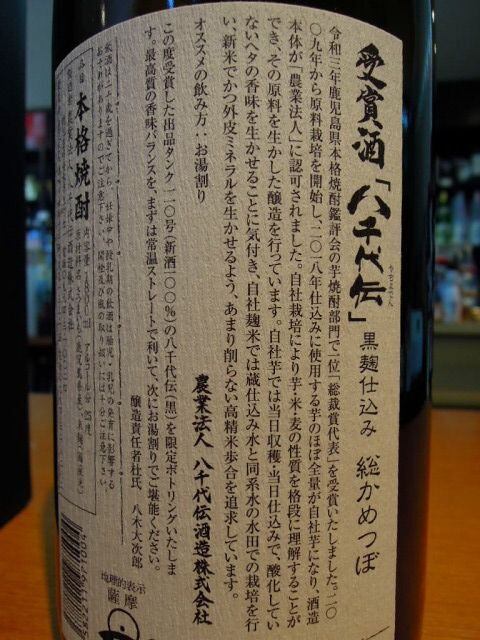 受賞酒「八千代伝」黒麹仕込み 総かめつぼ
やちよでん
令和三年鹿児島県本格焼酎鑑評会の芋焼酎部門で一位「総裁賞代表」を受賞いたしました。二〇
〇九年から原料栽培を開始し、二〇一八年仕込みに使用する芋のほぼ全量が自社芋になり、酒造
本体が「農業法人」に認可されました。自社栽培により芋・米・麦の性質を格段に理解することが
でき、その原料を生かした醸造を行っています。自社芋では当日収穫・当日仕込みで、酸化してい
ないヘタの香味を生かせることに気付き、自社麹米では蔵仕込み水と同系水の水田での栽培を行
い、新米でかつ外皮ミネラルを生かせるよう、あまり削らない高精米歩合を追求しています。
農業法人 八千代伝酒造株式会社
オススメの飲み方：お湯割り
この度受賞した出品タンク一二〇号（新酒一〇〇％）の八千代伝（黒）を限定ボトリングいたしま
す。最高質の香味バランスを、まずは常温ストレートで利いて、次にお湯割りでご堪能ください。
醸造責任者杜氏 八木大次郎
飲酒は二十歳を過ぎてから。妊娠中や授乳期の飲酒は胎児・乳児の発育に影響する
本格焼酎
アルコール分 25度
地理的表示
薩摩